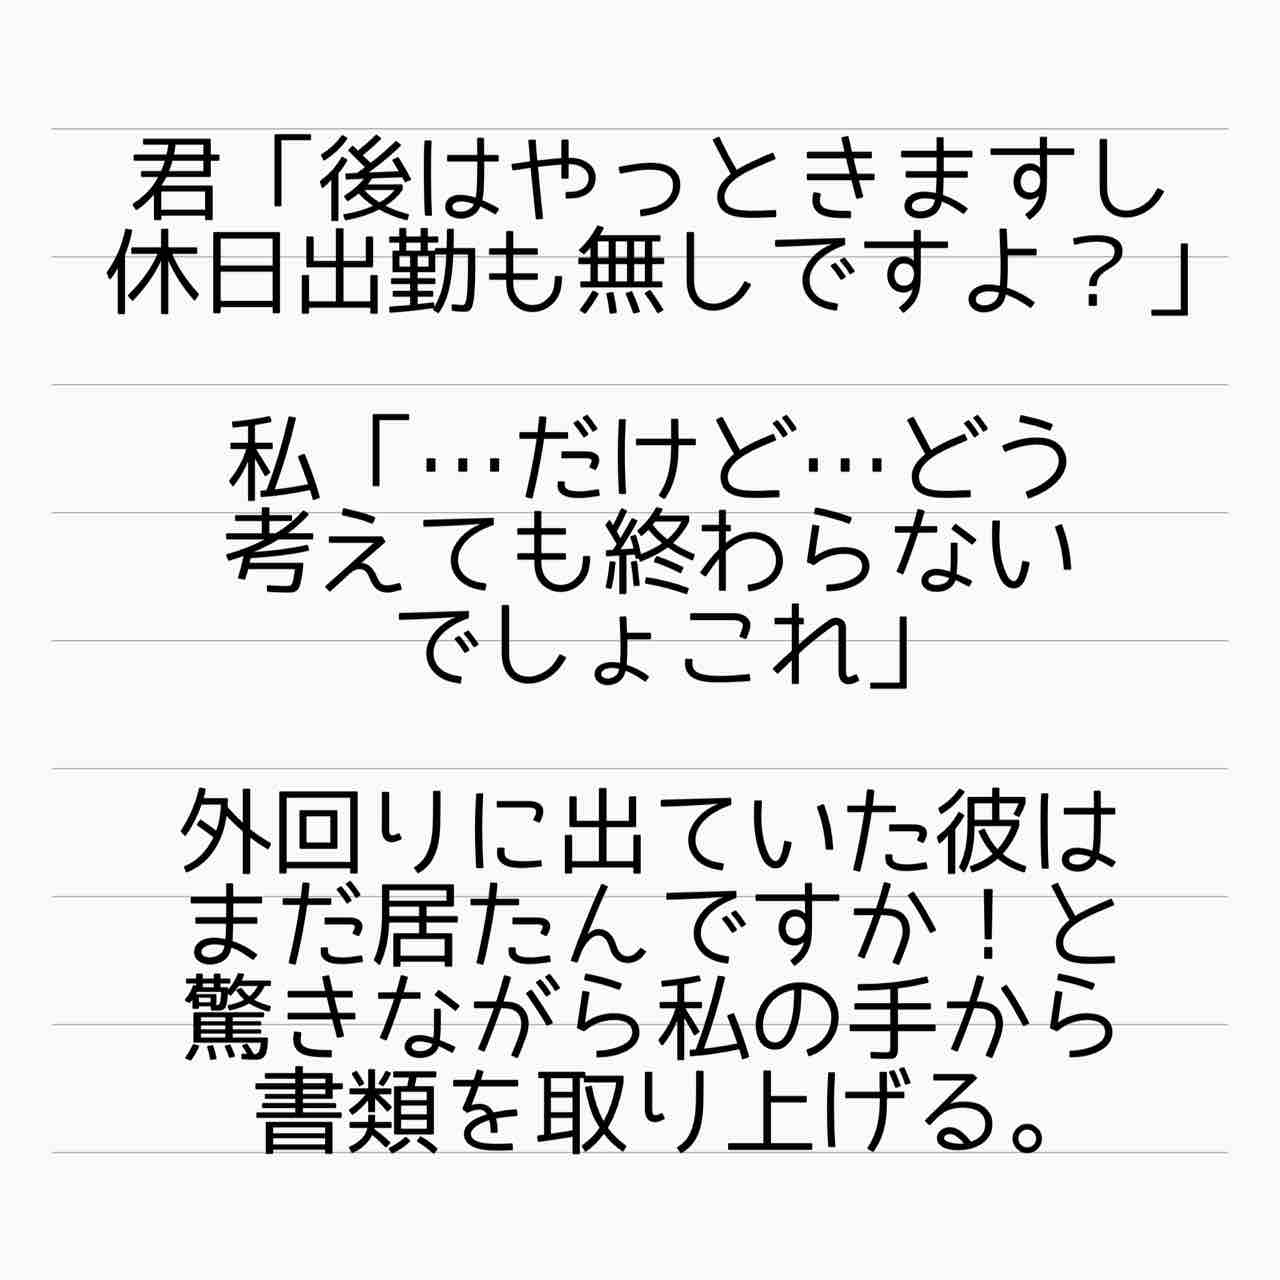 君「後はやっときますし
休日出勤も無しですよ？」
私「…だけど…どう
考えても終わらない
でしょこれ」
外回りに出ていた彼は
まだ居たんですか！と
驚きながら私の手から
書類を取り上げる。